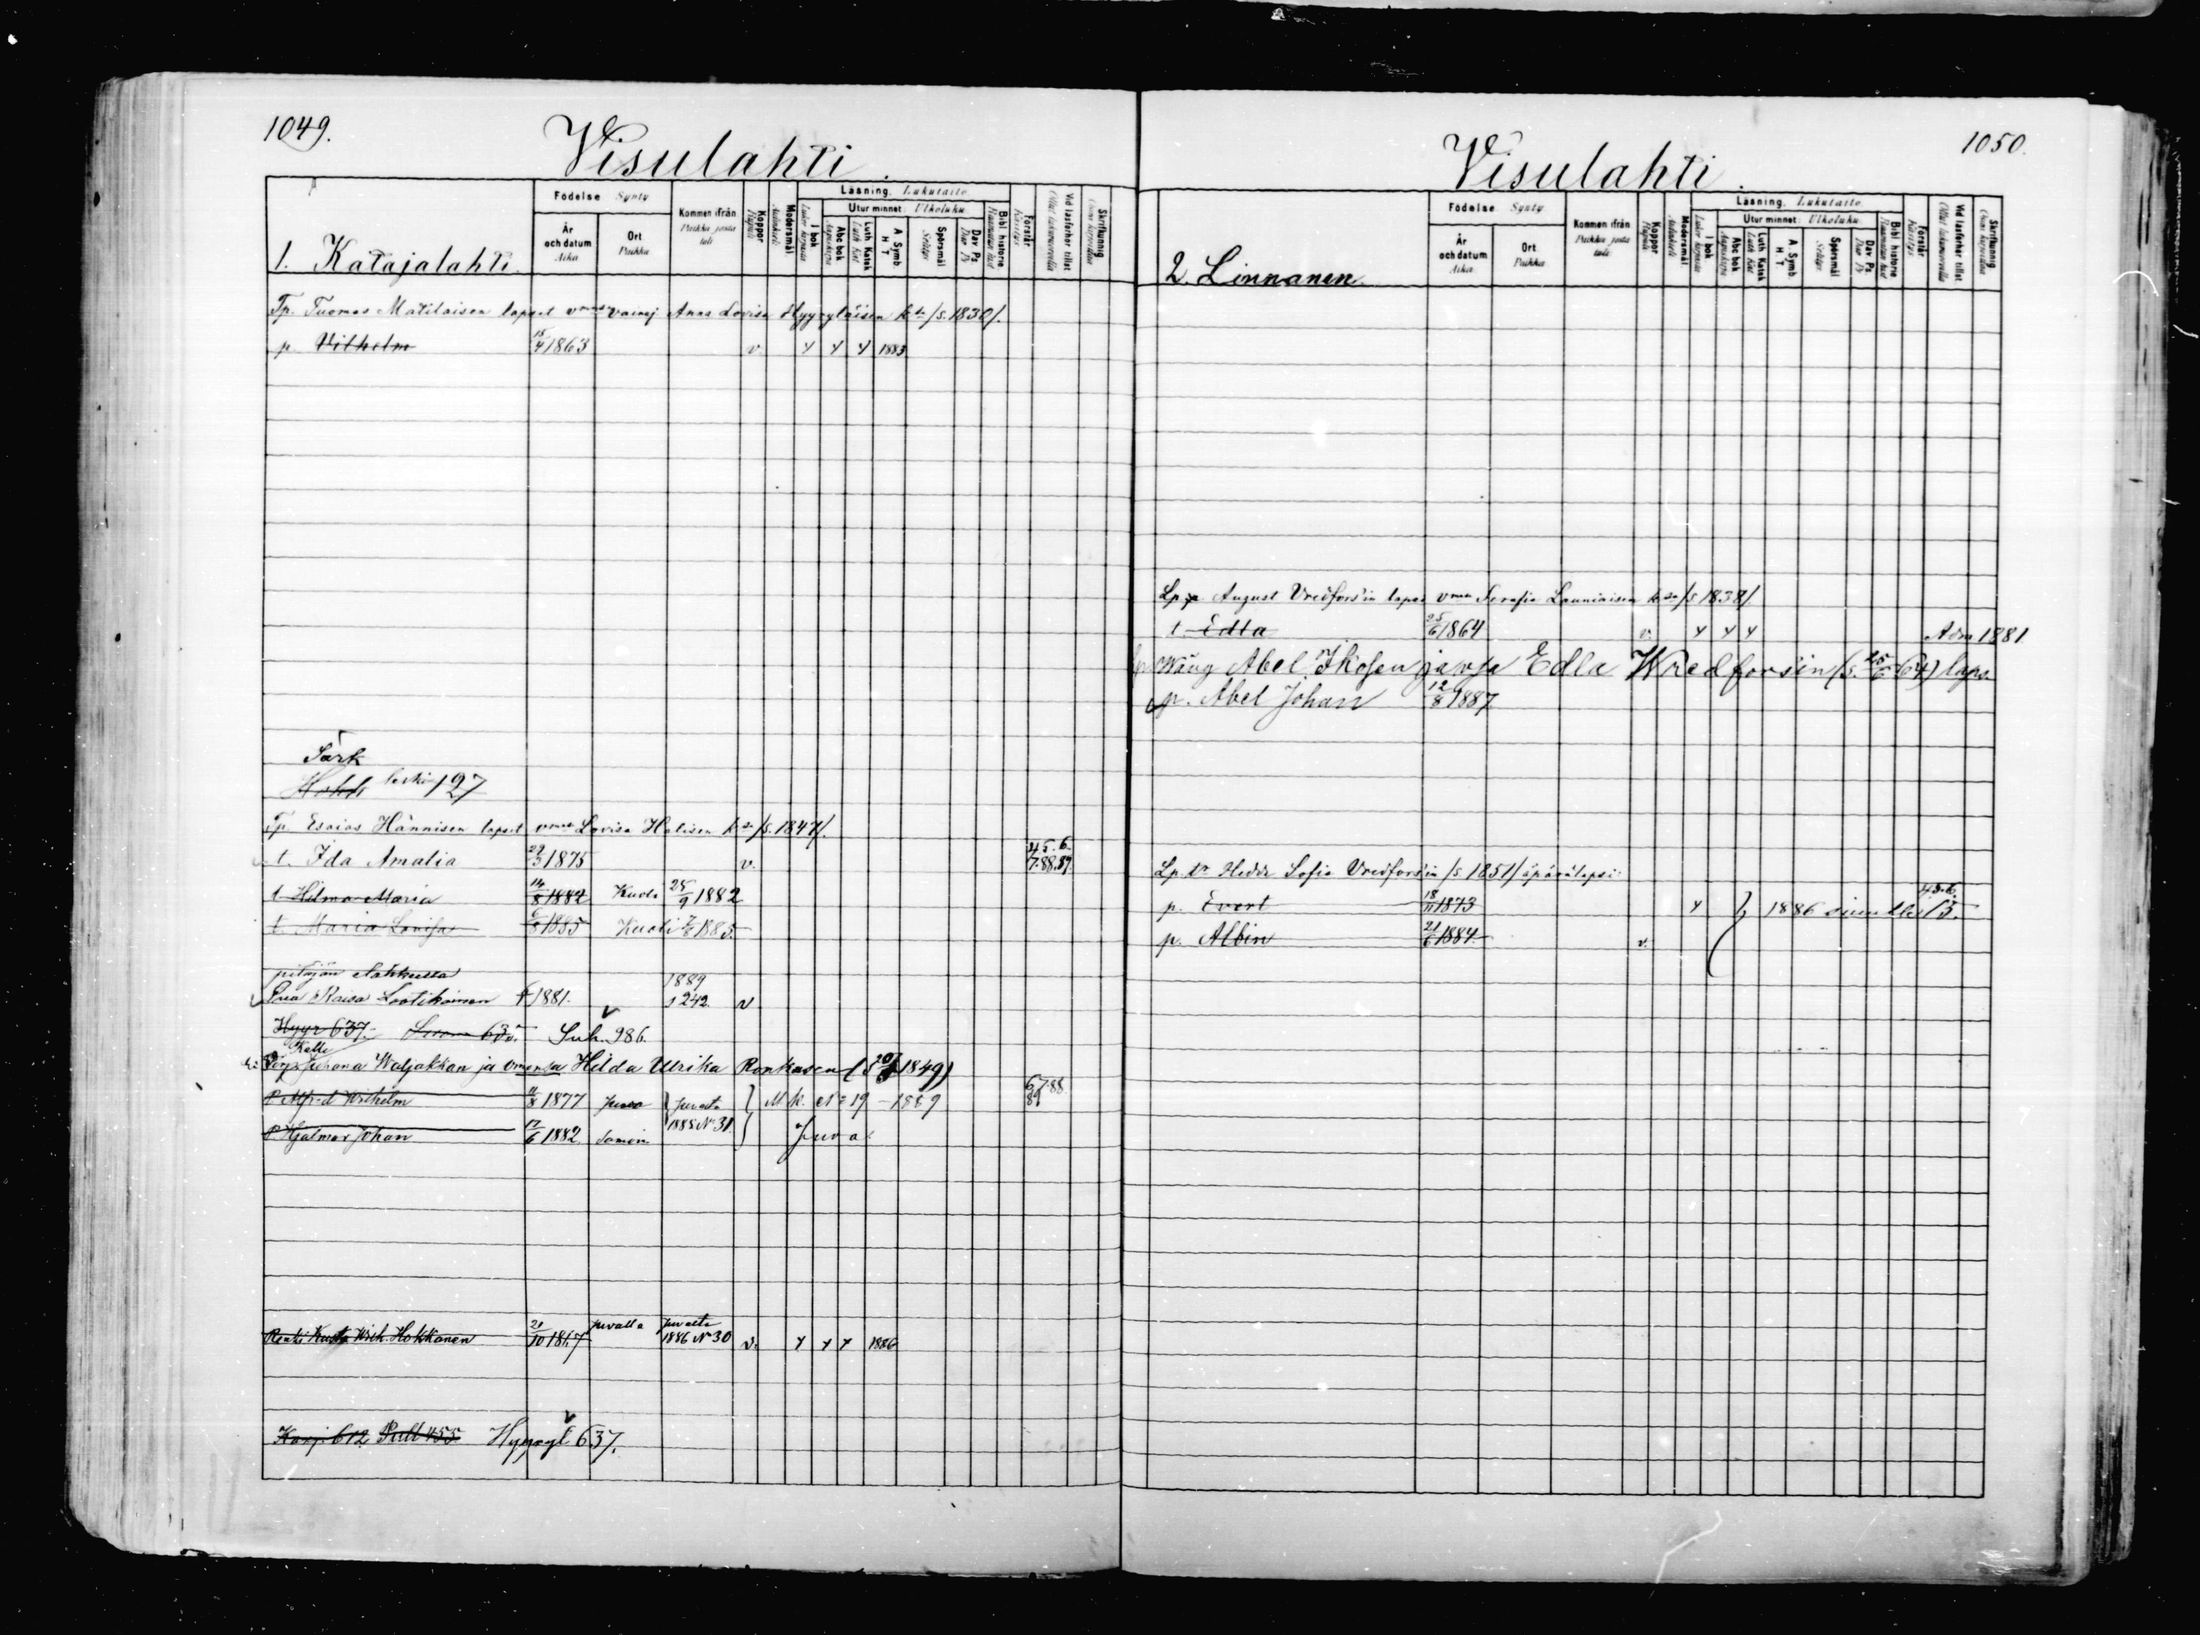 1049.
Visulahti.
1. Katajalahti.
Födelse Synty
År och datum Aika
Ort Paikka
Kommen ifrån Paikka josta tuli
Koppor Rupuli
Modersmål Äidinkieli
Läsning. Lukutaito
I bok Luku kirjassa
Utur minnet: Ulkoluku
Abc bok Aapiskirja
Luth Katek Luth Kat
A Symb. H T
Spörsmål Selitys
Dav Ps Dav Ps
Bibl historie Raamatun hist
Förstår Käsitys
Vid läsförhör tillst Ollut lukukunnolla
Skrifkunnig Osaa kirjoittaa
Tp. Tuomas Matilaisen lapset vmos Anna Lovisa Hyyryläisen k:sa /s. 1830/.
p. Vilhelm 15/4 1863 v. y y y 1883
Särk
leski 127
Tp. Esaias Hännisen lapset vmos Lovisa Halisen k:sa /s. 1847/.
t. Ida Amalia 29/3 1875 v. 45.6. 7.88.89.
t. Hilma Maria 14/8 1882 Kuoli 25/9 1882
t. Maria Lovisa 6/5 1885 Kuoli 7/6 1885.
pitäjän
Eva Raisa Lootikainen 1881. 1889 s 242. v
Hyyr 637. 635. Suh. 986.
Kelle
Juhana Waljakkan ja vmonsa Hilda Ulrika Ronkasen (s 1849)
p Alfred Wilhelm 11/8 1877 Juva Juvalta } M. k. No 19 - 1889 67.88. 89
p Hjalmar Johan 12/6 1882 Samoin 1885 No 31. } Juva.
Renki Kusta Wilh. Hokkanen 20/10 1867 Juvalla Juvalta 1886 No 30 v. y y y 1886
Karj. 612, Pull 455 Hyyryl 637.
1050.
Visulahti.
2. Linnanen.
Födelse Synty
År och datum Aika
Ort Paikka
Kommen ifrån Paikka josta tuli
Koppor Rupuli
Modersmål Äidinkieli
Läsning. Lukutaito
I bok Luku kirjassa
Utur minnet: Ulkoluku
Abc bok Aapiskirja
Luth Katek Luth Kat
A Symb. H T
Spörsmål Selitys
Dav Ps Dav Ps
Bibl historie Raamatun hist
Förstår Käsitys
Vid läsförhör tillst Ollut lukukunnolla
Skrifkunnig Osaa kirjoittaa
Lp. August Vredfors'in lapset vmos Serafia Launiaisen k:sa /s 1838/.
t. Edla 25/6 1864 v. y y y Adm 1881
Abel Ikosen ja vsa Edla Wredforsin (s. 25/6 64) laps.
p. Abel Johan 12/8 1887
Lp. tr Hedda Sofia Vredfors'in /s 1851/ äpärälapsi:
p. Evert 18/11 1873 y } 1886 43.6. 15.
p. Albin 21/6 1884 v.